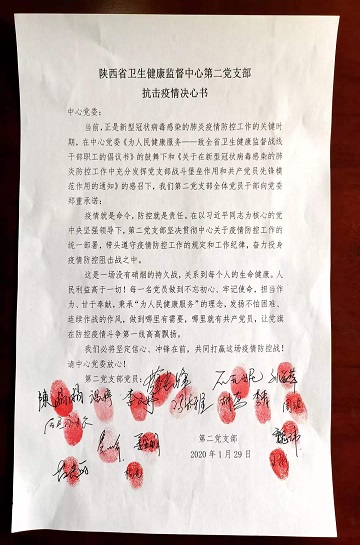 陕西省卫生健康监督中心第二党支部
抗击疫情决心书
中心党委：
当前，正是新型冠状病毒感染的肺炎疫情防控工作的关键时
期，在中心党委《为人民健康服务——致全省卫生健康监督战线
干部职工的倡议书》的鼓舞下和《关于在新型冠状病毒感染的肺
炎防控工作中充分发挥党支部战斗堡垒作用和共产党员先锋模
范作用的通知》的感召下，我们第二党支部全体党员干部向党委
郑重承诺：
疫情就是命令，防控就是责任。在以习近平同志为核心的党
中央坚强领导下，第二党支部坚决贯彻中心关于疫情防控工作的
统一部署，带头遵守疫情防控工作的规定和工作纪律，奋力投身
疫情防控阻击战之中。
这是一场没有硝烟的持久战，关系到每个人的生命健康。人
民利益高于一切！每一名党员做到不忘初心、牢记使命，担当作
为、甘于奉献，秉承“为人民健康服务”的理念，发扬不怕困难、
连续作战的作风，做到哪里有需要，哪里就有共产党员，让党旗
在防控疫情斗争第一线高高飘扬。
我们必将坚定信心、冲锋在前，共同打赢这场疫情防控战！
请中心党委放心！
第二党支部党员：
第二党支部
2020年1月29日